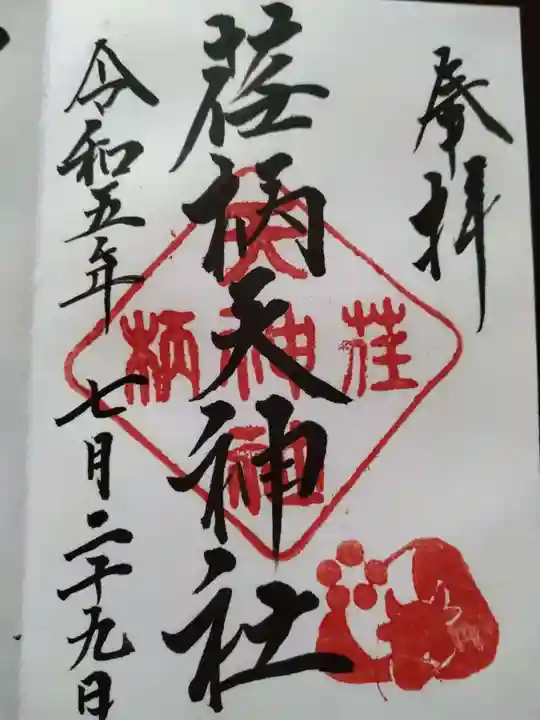 奉拝
荏柄天神社
荏柄天神社
令和五年 七月二十九日